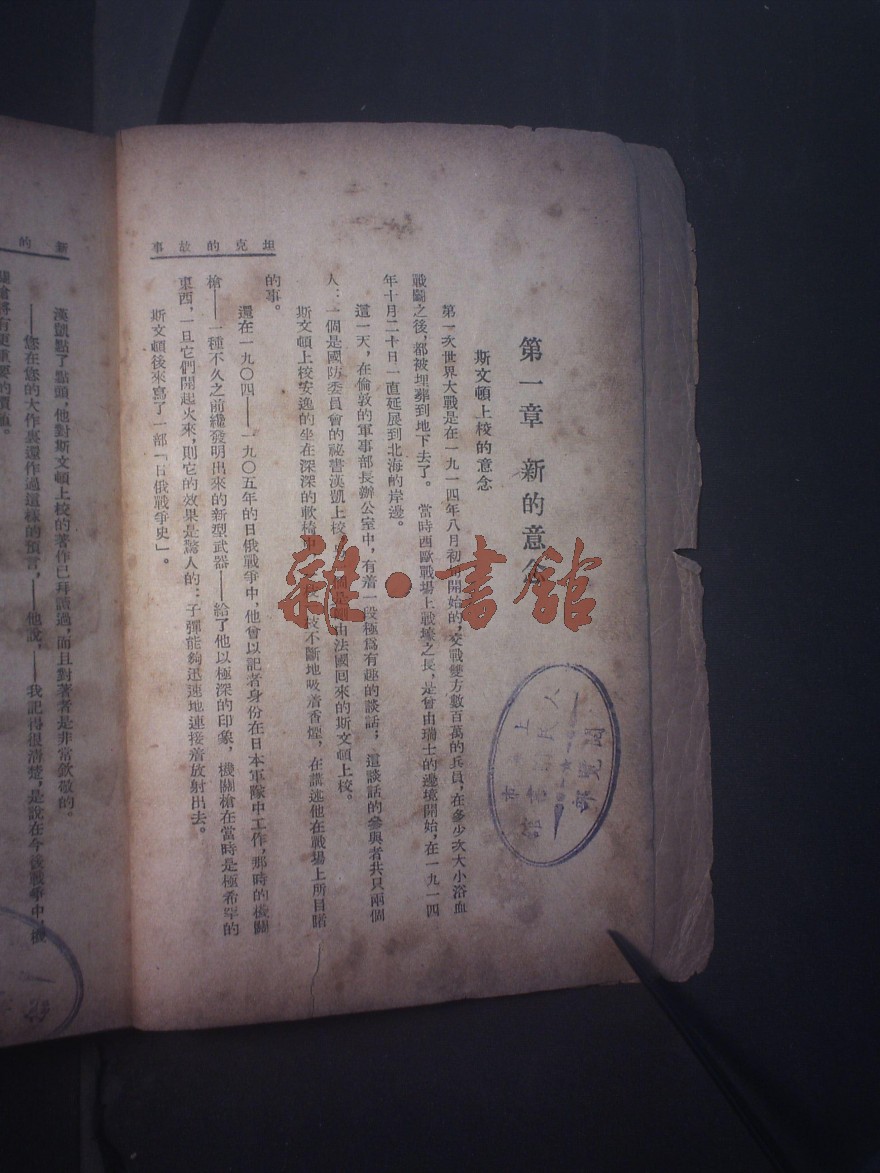 坦克的故事
第一章 新的意念
斯文頓上校的意念
第一次世界大戰是在一九一四年八月初旬開始的，交戰雙方數百萬的兵員，在多少次大小浴血
戰鬭之後，都被埋葬到地下去了。當時西歐戰場上戰壕之長，是曾由瑞士的邊境開始，在一九一四
年十月二十日一直延展到北海的岸邊。
這一天，在倫敦的軍事部長辦公室中，有着一段極爲有趣的談話；這談話的參與者共只兩個
人：一個是國防委員會的祕書漢凱上校，由法國回來的斯文頓上校。
斯文頓上校安逸的坐在深深的軟椅中，不斷地吸着香煙，在講述他在戰場上所目睹
的事。
還在一九〇四——一九〇五年的日俄戰爭中，他曾以記者身份在日本軍隊中工作，那時的機關
槍——一種不久之前纔發明出來的新型武器——給了他以極深的印象，機關槍在當時是極希罕的
東西，一旦它們開起火來，則它的效果是驚人的：子彈能夠迅速地連接着放射出去。
斯文頓後來寫了一部「日俄戰爭史」。
新的
漢凱點了點頭，他對斯文頓上校的著作已拜讀過，而且對著者是非常欽敬的。
——您在您的大作裏還作過這樣的預言，——他說，——我記得很清楚，是說在今後戰爭中，機
關槍將有更重要的價值。
雜·書館